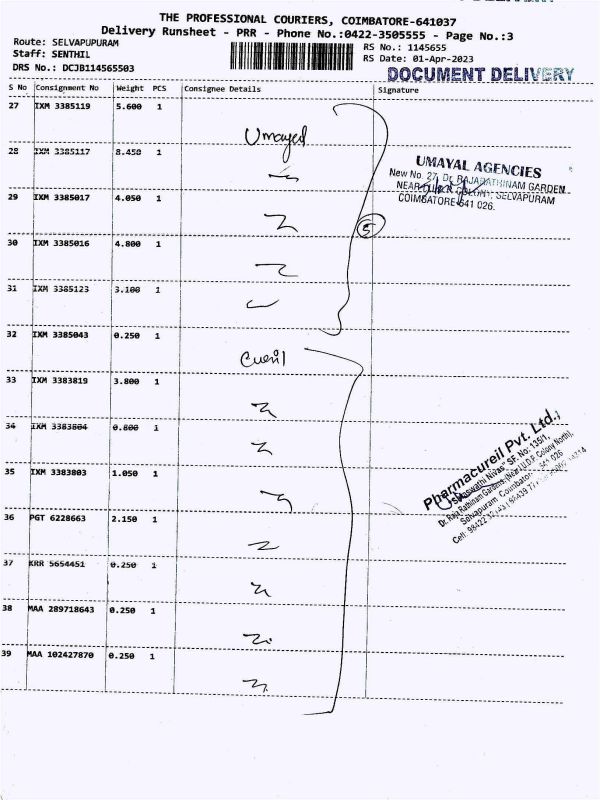 THE PROFESSIONAL COURIERS, COIMBATORE-641037
Delivery Runsheet - PRR - Phone No.:0422-3505555 - Page No.:3
Route: SELVAPUPURAM
Staff: SENTHIL
DRS No.: DCJB114565503
RS No.: 1145655
RS Date: 01-Apr-2023
DOCUMENT DELIVERY
S No Consignment No Weight PCS Consignee Details Signature
27 IXM 3385119 5.600 1
Umayal
28 IXM 3385117 8.450 1
29 IXM 3385017 4.050 1
30 IXM 3385016 4.800 1
31 IXM 3385123 3.100 1
5
UMAYAL AGENCIES
New No. 27, Dr. RAJARATHINAM GARDEN
NEAR COLONY, SELVAPURAM
COIMBATORE-641 026.
32 IXM 3385043 0.250 1
Cureil
33 IXM 3383819 3.800 1
34 IXM 3383804 0.800 1
35 IXM 3383803 1.050 1
36 PGT 6228663 2.150 1
37 KRR 5654451 0.250 1
38 MAA 289718643 0.250 1
39 MAA 102427870 0.250 1
Pharmacureil Pvt. Ltd.,
"Saraswathi Nivas" SF. No: 135/1,
Dr. Raja Rathinam Gardens (Near L.U.D.F. Colony North),
Selvapuram, Coimbatore - 641 026
Cell: 98422